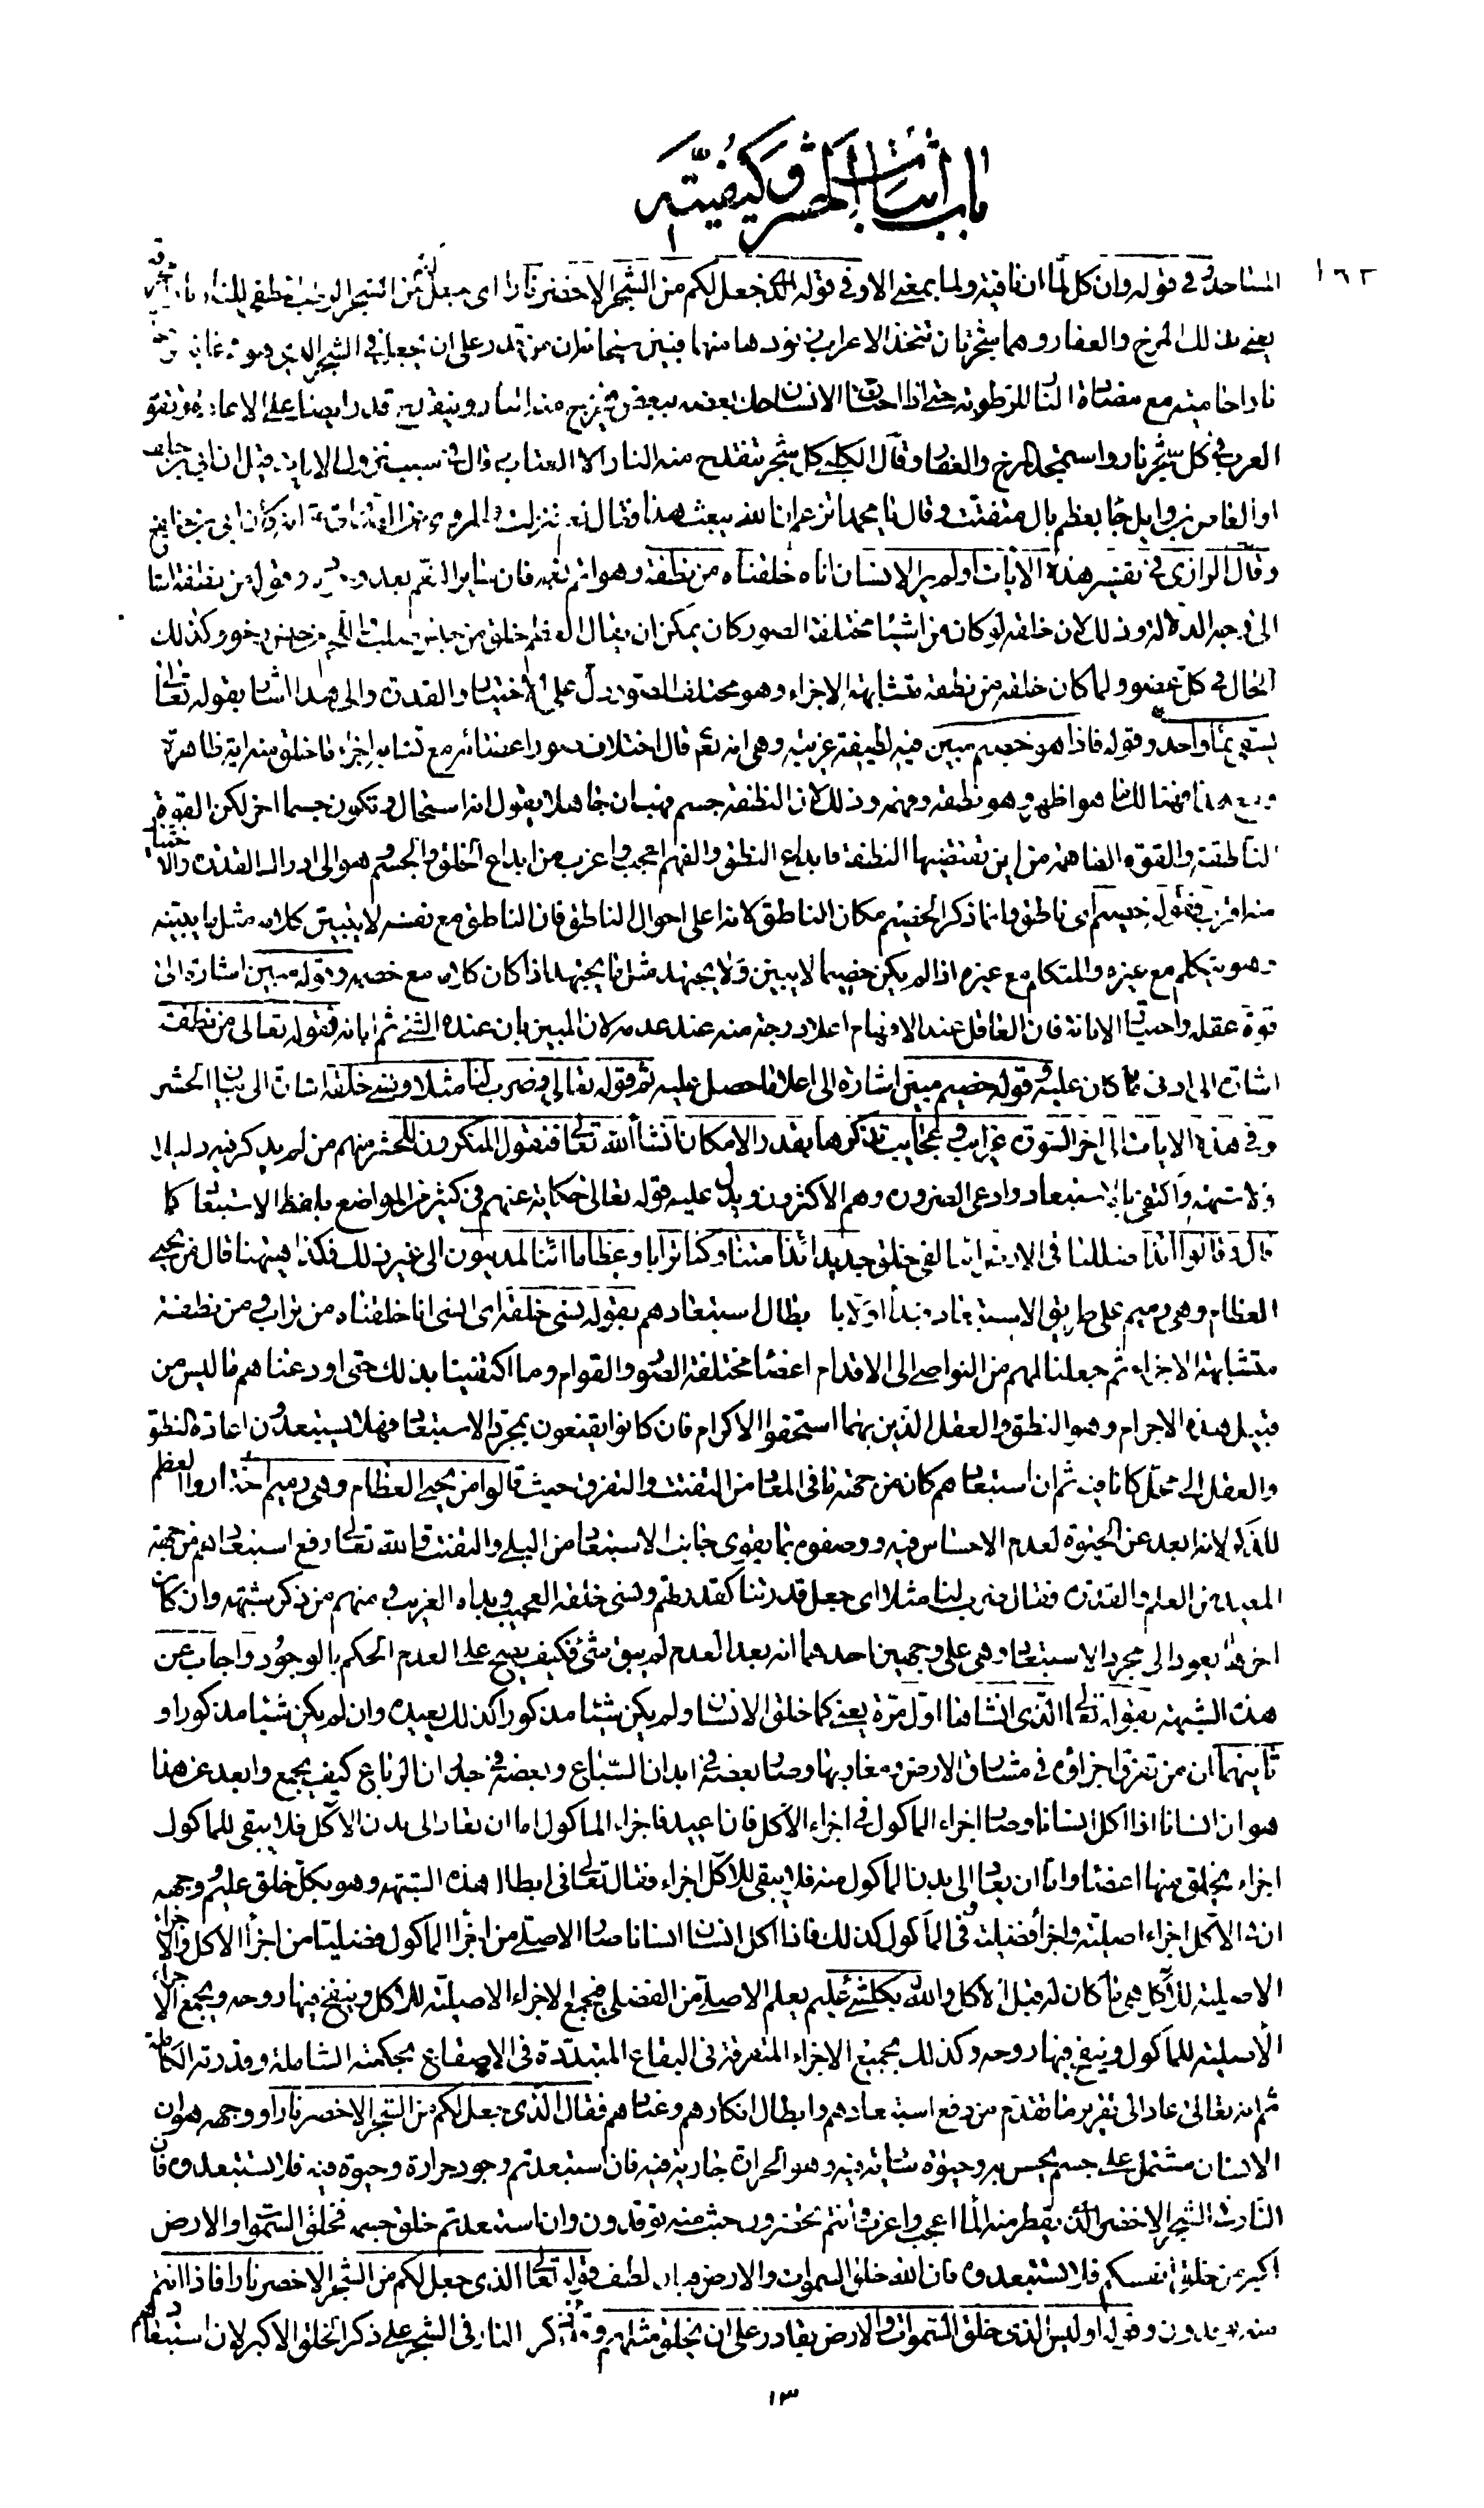 باب اثبات الحشر وكيفيته
١٦٢
المشاحد في قوله وان كل لما ان نافية ولما بمعنى الا وفي قوله الذي جعل لكم من الشجر الاخضر نارا اى جعل لكم من الشجر الرطب المطفي للنار نارا محرقة
يعني بذلك المرخ والعفار وهما شجرتان تتخذ الاعراب زنودها منهما فبين سبحانه ان من قدر على ان يجعل في الشجر الذي هو في غاية
نارا حامية مع مضادة النار للرطوبة حتى اذا احتاج الانسان حك بعضه ببعض فيخرج منه النار وينقدح قدر ايضا على الاعادة وتقول
العرب في كل شجر نار واستمجد المرخ والعفار وقال الكلبي كل شجر تنقدح منه النار الا العناب وقال في سبب نزول الايات قيل ان ابي بن خلف
او العاص بن وايل جاء بعظم بال متفتت وقال يا محمد اتزعم ان الله يبعث هذا فقال نعم فنزلت والمروي عن الصادق انه كان ابي بن خلف
وقال الرازي في تفسير هذه الايات اولم ير الانسان انا خلقناه من نطفة وهو اتم نعمة فان ساير النعم بعد وجوده وقوله من نطفة اشارة
الى وجه الدلالة وذلك لان خلقه لو كان من اشياء مختلفة الصور كان يمكن ان يقال العظم خلق من جنس صلب واللحم من جنس رخو وكذلك
الحال في كل عضو ولما كان خلقه من نطفة متشابهة الاجزاء وهو مختلف الصور دل على الاختيار والقدرة والى هذا اشار بقوله تعالى
يسقى بماء واحد وقوله فاذا هو خصيم مبين فيه لطيفة غريبة وهى انه تعالى قال اختلاف صور اعضائه مع تشابه اجزاء ما خلق منه اية ظاهرة
ومع هذا فهنالك ما هو اظهر وهو نطقه وفهمه وذلك لان النطفة جسم فهب ان جاهلا يقول انه استحال وتكون جسما اخر لكن القوة
الناطقة والقوة الفاهمة من اين تقتضيها النطفة فابداع النطق والفهم اعجب واغرب من ابداع الخلق والجسم وهو الى ادراك القدرة والاختيار
منه اقرب فقوله خصيم اى ناطق وانما ذكر الخصيم مكان الناطق لانه اعلى احوال الناطق فان الناطق مع نفسه لا يتبين كلامه مثل ما يبينه
وهو يتكلم مع غيره والمتكلم مع غيره اذا لم يكن خصيما لا يبين ولا يجتهد مثل ما يجتهد اذا كان كلامه مع خصمه وقوله مبين اشارة الى
قوة عقله واختيار الابانة فان العاقل عند الافهام اعلا درجة منه عند عدمه لان المبين بان عنده الشئ ثم ابانه فقوله تعالى من نطفة
اشارة الى ادنى ما كان عليه وقوله خصيم مبين اشارة الى اعلا ما حصل عليه ثم قوله تعالى وضرب لنا مثلا ونسى خلقه اشارة الى بيان الحشر
وفي هذه الايات الى اخر السورة غرايب وعجايب نذكرها بقدر الامكان انشاء الله تعالى فنقول المنكرون للحشر منهم من لم يذكر فيه دليلا
ولا شبهة واكتفى بالاستبعاد وادعى الضرورة وهم الاكثرون ويدل عليه قوله تعالى حكاية عنهم في كثير من المواضع بلفظ الاستبعاد كما
قال وقالوا ائذا ضللنا في الارض ائنا لفي خلق جديد ائذا متنا وكنا ترابا وعظاما ائنا لمدينون الى غير ذلك فكذا هيهنا قال من يحيى
العظام وهى رميم على طريق الاستبعاد فبدأ اولا بابطال استبعادهم بقوله نسى خلقه اى نسى انا خلقناه من تراب ومن نطفة
متشابهة الاجزاء ثم جعلنا لهم من النواصى الى الاقدام اعضاء مختلفة الصور والقوام وما اكتفينا بذلك حتى اودعناهم ما ليس من
قبيل هذه الاجرام وهو النطق والعقل الذين بهما استحقوا الاكرام فان كانوا يقنعون بمجرد الاستبعاد فهلا يستبعدون اعادة النطق
والعقل الى محل كانا فيه ثم ان استبعادهم كان من جهة ما في المعاد من التفتت والتفرق حيث قالوا من يحيى العظام وهى رميم اختاروا العظم
للذكر لانه ابعد عن الحيوة لعدم الاحساس فيه ووصفوه بما يقوى جانب الاستبعاد من البلى والتفتت والله تعالى دفع استبعادهم من جهة
المعيد من العلم والقدرة فقال ضرب لنا مثلا اى جعل قدرتنا كقدرتهم ونسى خلقه العجيب وبدأه الغريب ومنهم من ذكر شبهة وان كان
اخرها يعود الى مجرد الاستبعاد وهى على وجهين احدهما انه بعد العدم لم يبق شئ فكيف يصح على العدم الحكم بالوجود واجاب عن
هذه الشبهة بقوله تعالى الذي انشاها اول مرة يعنى كما خلق الانسان ولم يكن شيئا مذكورا كذلك يعيده وان لم يكن شيئا مذكورا و
ثانيهما ان من تفرق اجزاؤه في مشارق الارض ومغاربها وصار بعضه في ابدان السباع وبعضه في جدران الرباع كيف يجمع وابعد من هذا
هو ان انسانا اذا اكل انسانا وصار اجزاء الماكول في اجزاء الاكل فان اعيد فاجزاء الماكول اما ان تعاد الى بدن الاكل فلا يبقى للماكول
اجزاء يخلق منها اعضاء واما ان يعاد الى بدن الماكول منه فلا يبقى للاكل اجزاء فقال تعالى في ابطال هذه الشبهة وهو بكل خلق عليم ووجهه
ان في الاكل اجزاء اصلية واجزاء فضلية وفي الماكول كذلك فاذا اكل انسان انسانا صار الاصلى من اجزاء الماكول فضليا من اجزاء الاكل والاجزاء
الاصلية للاكل هى ما كان له قبل الاكل والله بكل شئ عليم يعلم الاصلى من الفضلى فيجمع الاجزاء الاصلية للاكل وينفخ فيها روحه ويجمع الاجزاء
الاصلية للماكول وينفخ فيها روحه وكذلك يجمع الاجزاء المتفرقة في البقاع المتبددة في الاصقاع بحكمته الشاملة وقدرته الكاملة
ثم انه تعالى عاد الى تقرير ما تقدم من دفع استبعادهم وابطال انكارهم وعنادهم فقال الذي جعل لكم من الشجر الاخضر نارا ووجهه هو ان
الانسان مشتمل على جسم يحس به وحيوة سارية فيه وهو كحرارة جارية فيه فان استبعدتم وجود حرارة وحيوة فيه فلا تستبعدوه فان
النار في الشجر الاخضر الذي يقطر منه الماء اعجب واغرب وانتم تحضرون حيث منه توقدون وان استبعدتم خلق جسمه فخلق السموات والارض
اكبر من خلق انفسكم فلا تستبعدوه فان الله خلق السموات والارض فبان لطف قوله تعالى الذي جعل لكم من الشجر الاخضر نارا فاذا انتم
منه توقدون وقوله اوليس الذي خلق السموات والارض بقادر على ان يخلق مثلهم وقدم ذكر النار في الشجر على ذكر الخلق الاكبر لان استبعادهم
١٣